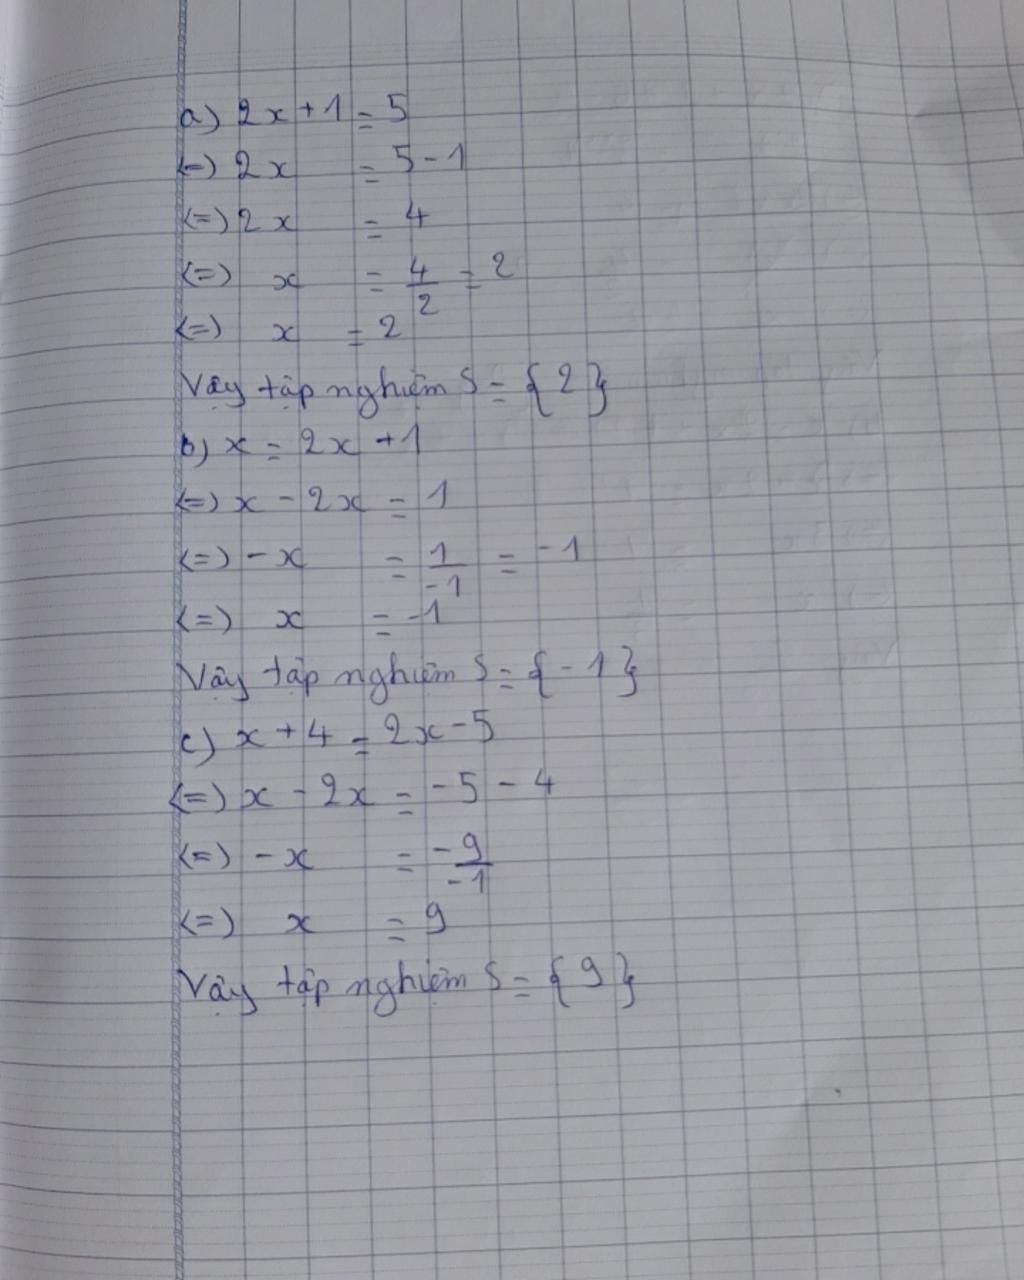 a) 2x + 1 = 5
(=) 2x = 5 - 1
(=) 2x = 4
(=) x = 4/2 = 2
(=) x = 2
Vậy tập nghiệm S = {2}
b) x = 2x + 1
(=) x - 2x = 1
(=) -x = 1/-1 = -1
(=) x = -1
Vậy tập nghiệm S = {-1}
c) x + 4 = 2x - 5
(=) x - 2x = -5 - 4
(=) -x = -9/-1
(=) x = 9
Vậy tập nghiệm S = {9}